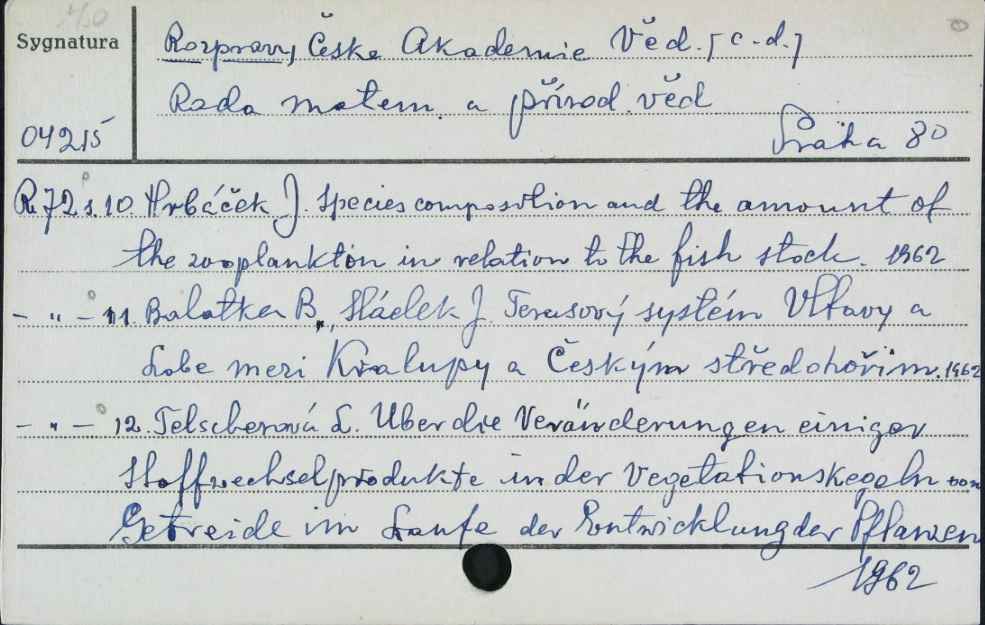 Sygnatura
Rozpravy České Akademie Věd. [c.d.]
Rada matem. a přírod. věd
04215
Praha 80
R. 72 s. 10. Hrbáček J. Species composition and the amount of
the zooplankton in relation to the fish stock. 1962
- " - 11. Balatka B., Sládek J. Terasový systém Vltavy a
Labe mezi Kralupy a Českým středohořím. 1962
- " - 12. Telscherová L. Uber die Veränderungen einiger
Stoffwechselprodukte in der Vegetationskegeln von
Getreide im Laufe der Entwicklung der Pflanzen
1962